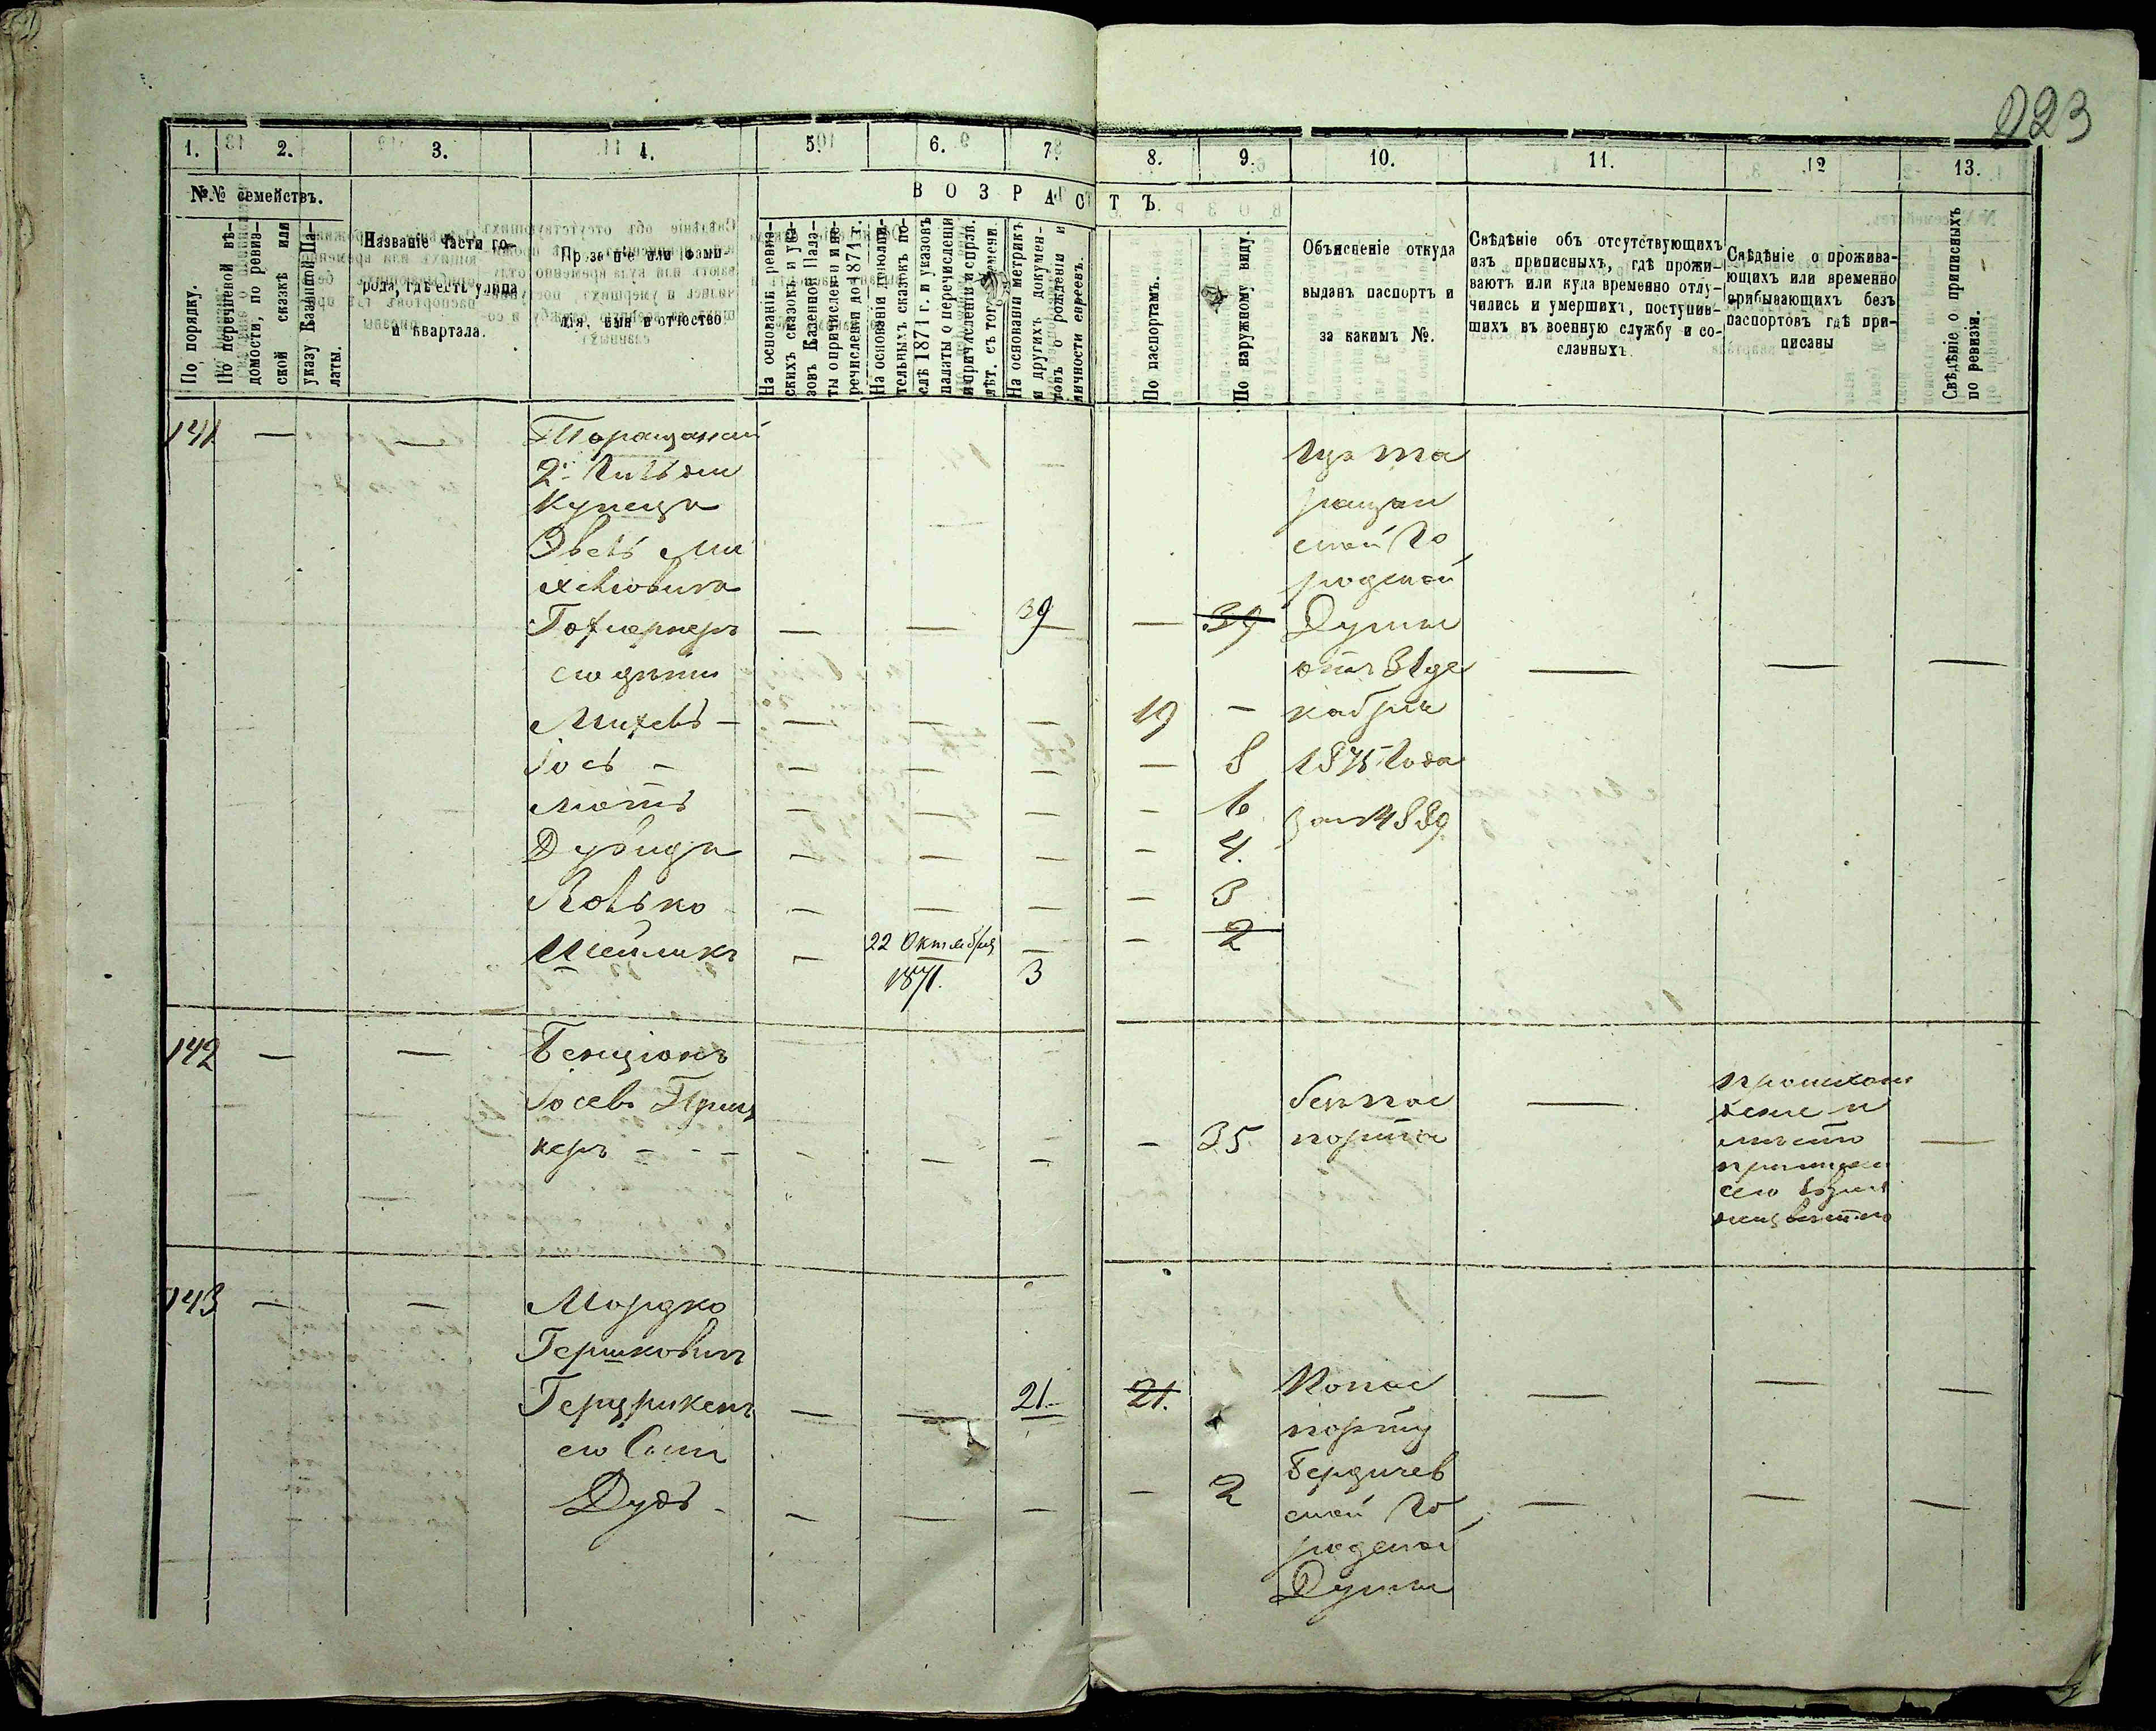 223
1. 2. 3. 4. 5. 6. 7. 8. 9. 10. 11. 12 13.
№.№ семействъ.
В О З Р А С Т Ъ.
По порядку.
По перечневой вѣ-
домости, по ревиз-
ской сказкѣ или
указу Казенной Па-
латы.
Названіе части го-
рода, гдѣ есть улица
и квартала.
Прозваніе или Фами-
лія, имя и отчество
На основаніи ревиз-
скихъ сказокъ и ука-
зовъ Казенной Пала-
ты о причисленіи и пе-
речисленіи до 1871 г.
На основаніи дополни-
тельныхъ сказокъ по-
слѣ 1871 г. и указовъ
палаты о перечисленіи
и причисленіи и
лѣт. съ того времени.
На основаніи метрикъ
и другихъ докумен-
товъ о рожденіи и
личности евреевъ.
По паспортамъ.
По наружному виду.
Объясненіе откуда
выданъ паспортъ и
за какимъ №.
Свѣдѣніе объ отсутствующихъ
изъ приписныхъ, гдѣ прожи-
ваютъ или куда временно отлу-
чились и умершихъ, поступив-
шихъ въ военную службу и со-
сланныхъ.
Свѣдѣніе о прожива-
ющихъ или временно
прибывающихъ безъ
паспортовъ гдѣ при-
писаны
Свѣдѣніе о приписныхъ
по ревизіи.
141 — — Таращанскій
2й Гильдіи
Купецъ
Эвель Ми
хелювичъ
— — 39 — 39
его дѣти
Михель — — — — 19 —
Іось — — — — — 8
Мотъ — — — — 6
Дувидъ — — — — 4.
— — — — 3
— 22 Октября — — 2
1871. 3
Изъ Та
ращан
ской Го
родской
Думы
отъ 31 де
кабря
1875 Года
за № 4889
— — —
142 — — Бенціонъ
Іосевъ
керъ — — — — — — — 35
безъ пас
порта
—
происхож
деніе и
мѣсто
приписки
его
неизвестно
—
143 — — Мордко
Гершковичъ
— — 21 — 21.
его Сынъ
Дудъ — — — — — 2
По пас
порту
Бердичев
ской Го
родской
Думы
— — —
— — —